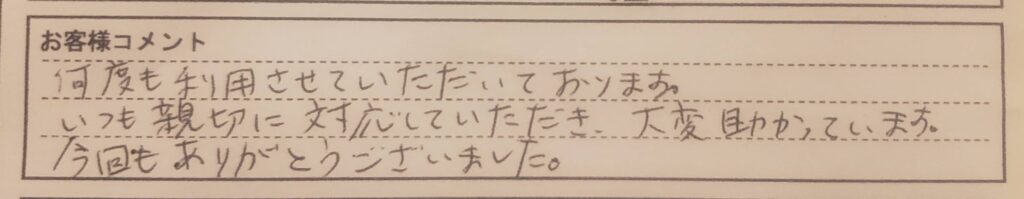 お客様コメント
何度も利用させていただいております。
いつも親切に対応していただき、大変助かっています。
今回もありがとうございました。